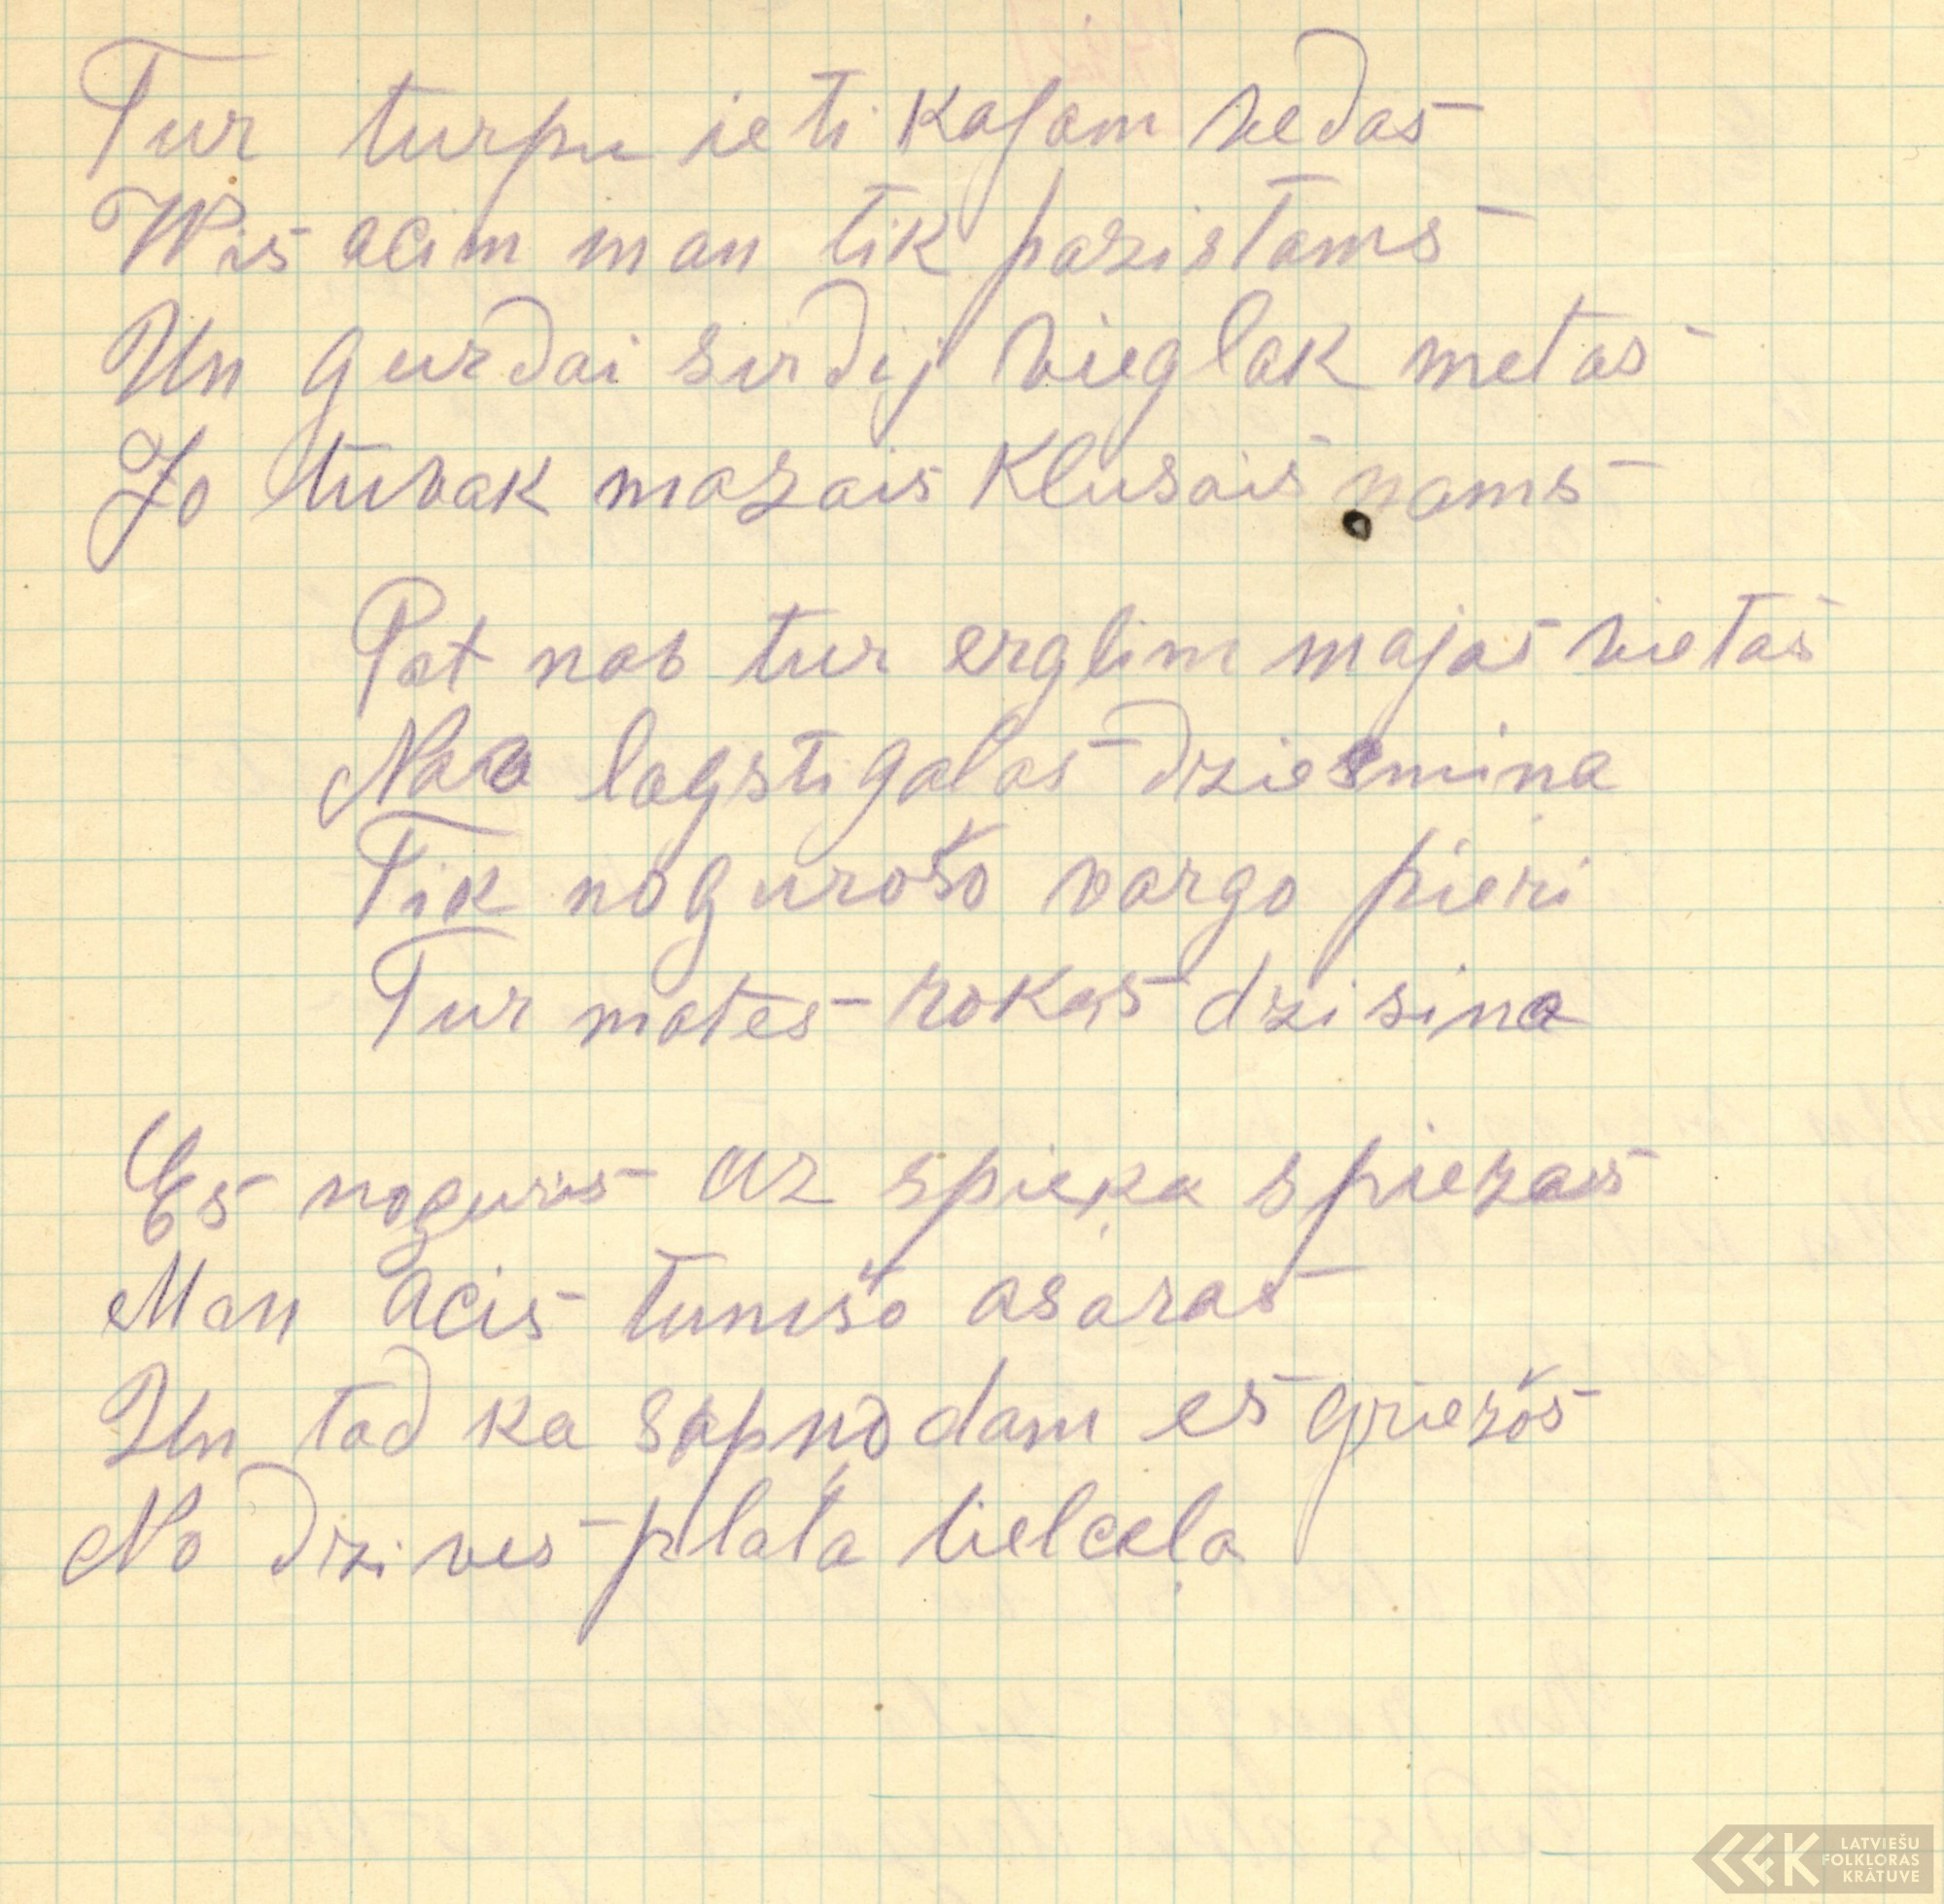 Tur turpu ieti kajam vedas
Wis acim man tik pazistams
Un gurdai sirdij vieglak metas
Jo tuvak mazais klusais nams
Pat nav tur erglim majas vietas
Nava lagstigalas dziesmiņa
Tik nogurošo vargo pieri
Tur mates rokas dzisina
Es noguris uz spieķa spiezas
Man acis tumšo asaras
Un tad ka sapņodam es griežos
No dzives plaša lielceļa
LATVIEŠU
FOLKLORAS
KRĀTUVE